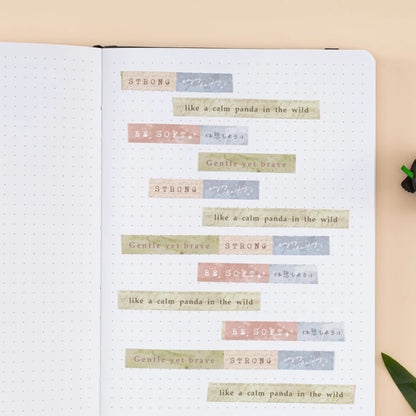 STRONG
like a calm panda in the wild
BE SOFT
Gentle yet brave
STRONG
like a calm panda in the wild
Gentle yet brave STRONG
BE SOFT
like a calm panda in the wild
BE SOFT
Gentle yet brave STRONG
like a calm panda in the wild